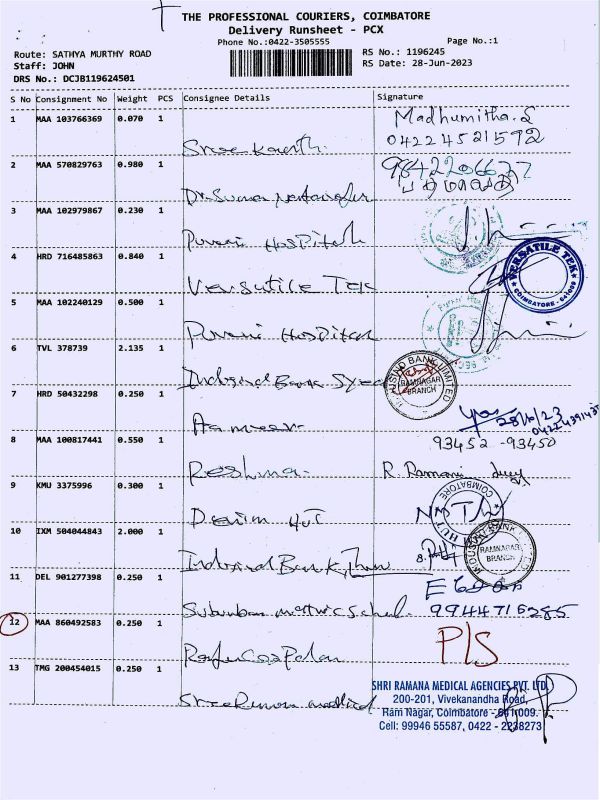 THE PROFESSIONAL COURIERS, COIMBATORE
Delivery Runsheet - PCX
Phone No.:0422-3505555
Page No.:1
Route: SATHYA MURTHY ROAD
RS No.: 1196245
Staff: JOHN
RS Date: 28-Jun-2023
DRS No.: DCJB119624501
S No Consignment No Weight PCS Consignee Details Signature
1 MAA 103766369 0.070 1 Madhumitha.S
04224521592
2 MAA 570829763 0.980 1
3 MAA 102979867 0.230 1
Hospital
4 HRD 716485863 0.840 1
Versutile Tek
VERSATILE TEK
COIMBATORE - 641009
5 MAA 102240129 0.500 1
Hospital
6 TVL 378739 2.135 1
Indusind Bank
INDUSIND BANK LIMITED
RAMNAGAR
BRANCH
7 HRD 50432298 0.250 1
28/6/23
8 MAA 100817441 0.550 1
93452 -93450
Reshma
R. Ramani
9 KMU 3375996 0.300 1
COIMBATORE
Denim HUT
10 IXM 504044843 2.000 1
RAMNAGAR
BRANCH
Indusind Bank,
11 DEL 901277398 0.250 1
Suburban matric School.
9944715285
12 MAA 860492583 0.250 1
P/S
13 TMG 200454015 0.250 1
SHRI RAMANA MEDICAL AGENCIES PVT. LTD.
200-201, Vivekanandha Road,
Ram Nagar, Coimbatore - 641 009.
Cell: 99946 55587, 0422 - 2238273